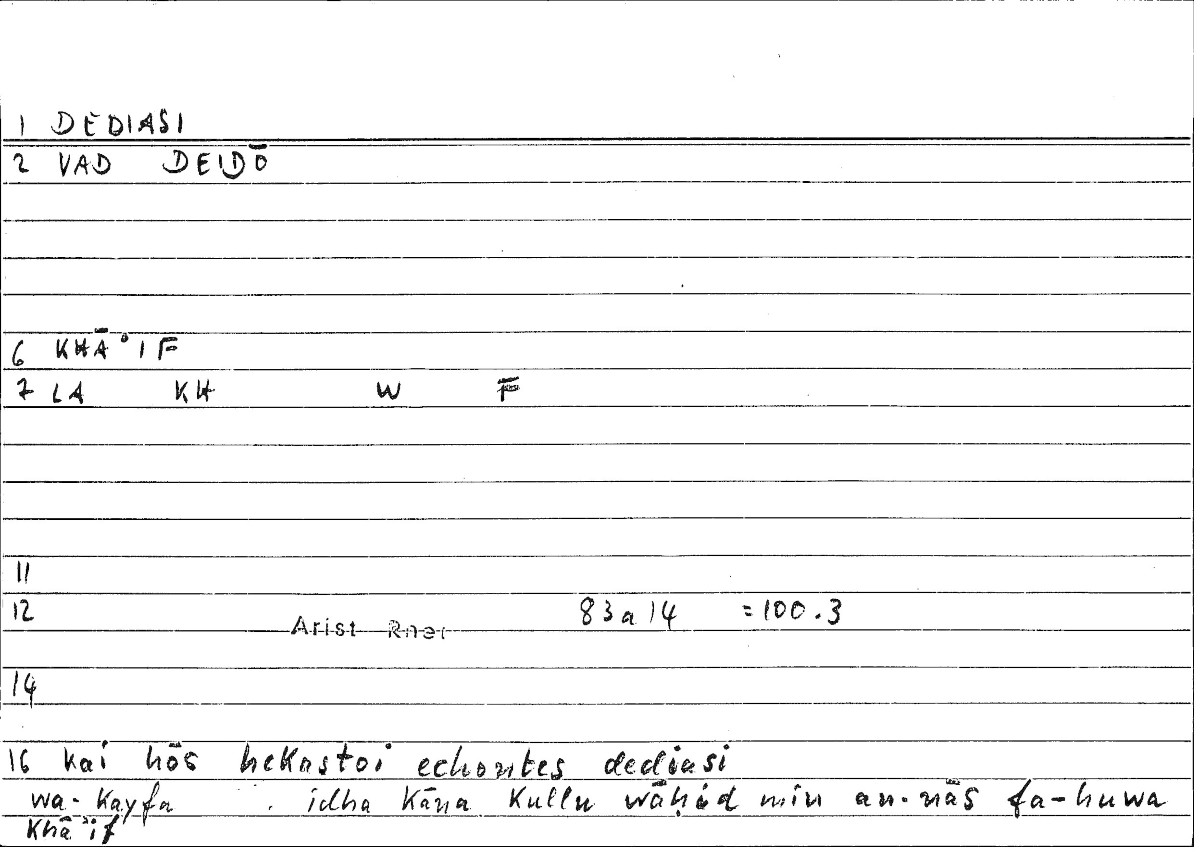 1 DEDIASI
2 VAD DEIDŌ
6 KHĀ'IF
7 LA KH W F
11
12 Arist Rhet 83a14 =100.3
14
16 kai hōs hekastoi echontes dediasi
wa-kayfa . idha kāna kullu wāḥid min an-nās fa-huwa
khā'if